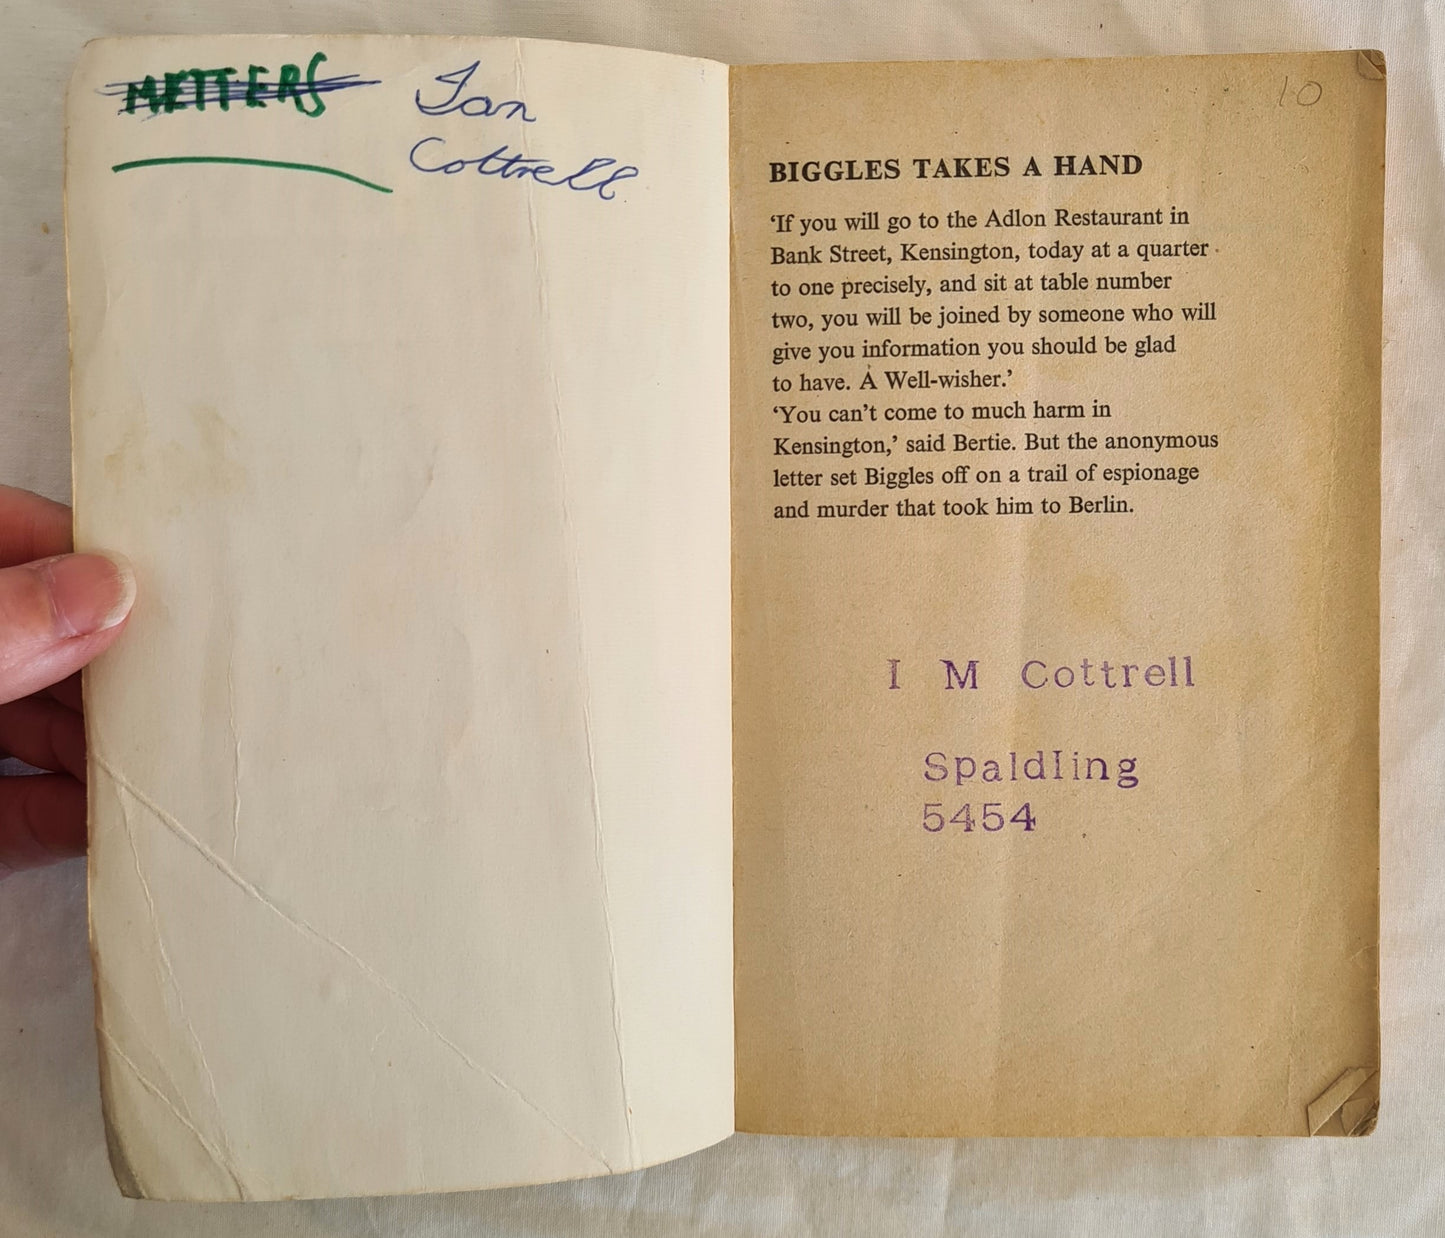 METTERS
Ian
Cottrell
10
BIGGLES TAKES A HAND
‘If you will go to the Adlon Restaurant in
Bank Street, Kensington, today at a quarter
to one precisely, and sit at table number
two, you will be joined by someone who will
give you information you should be glad
to have. A Well-wisher.’
‘You can’t come to much harm in
Kensington,’ said Bertie. But the anonymous
letter set Biggles off on a trail of espionage
and murder that took him to Berlin.
I M Cottrell
SpaldIing
5454